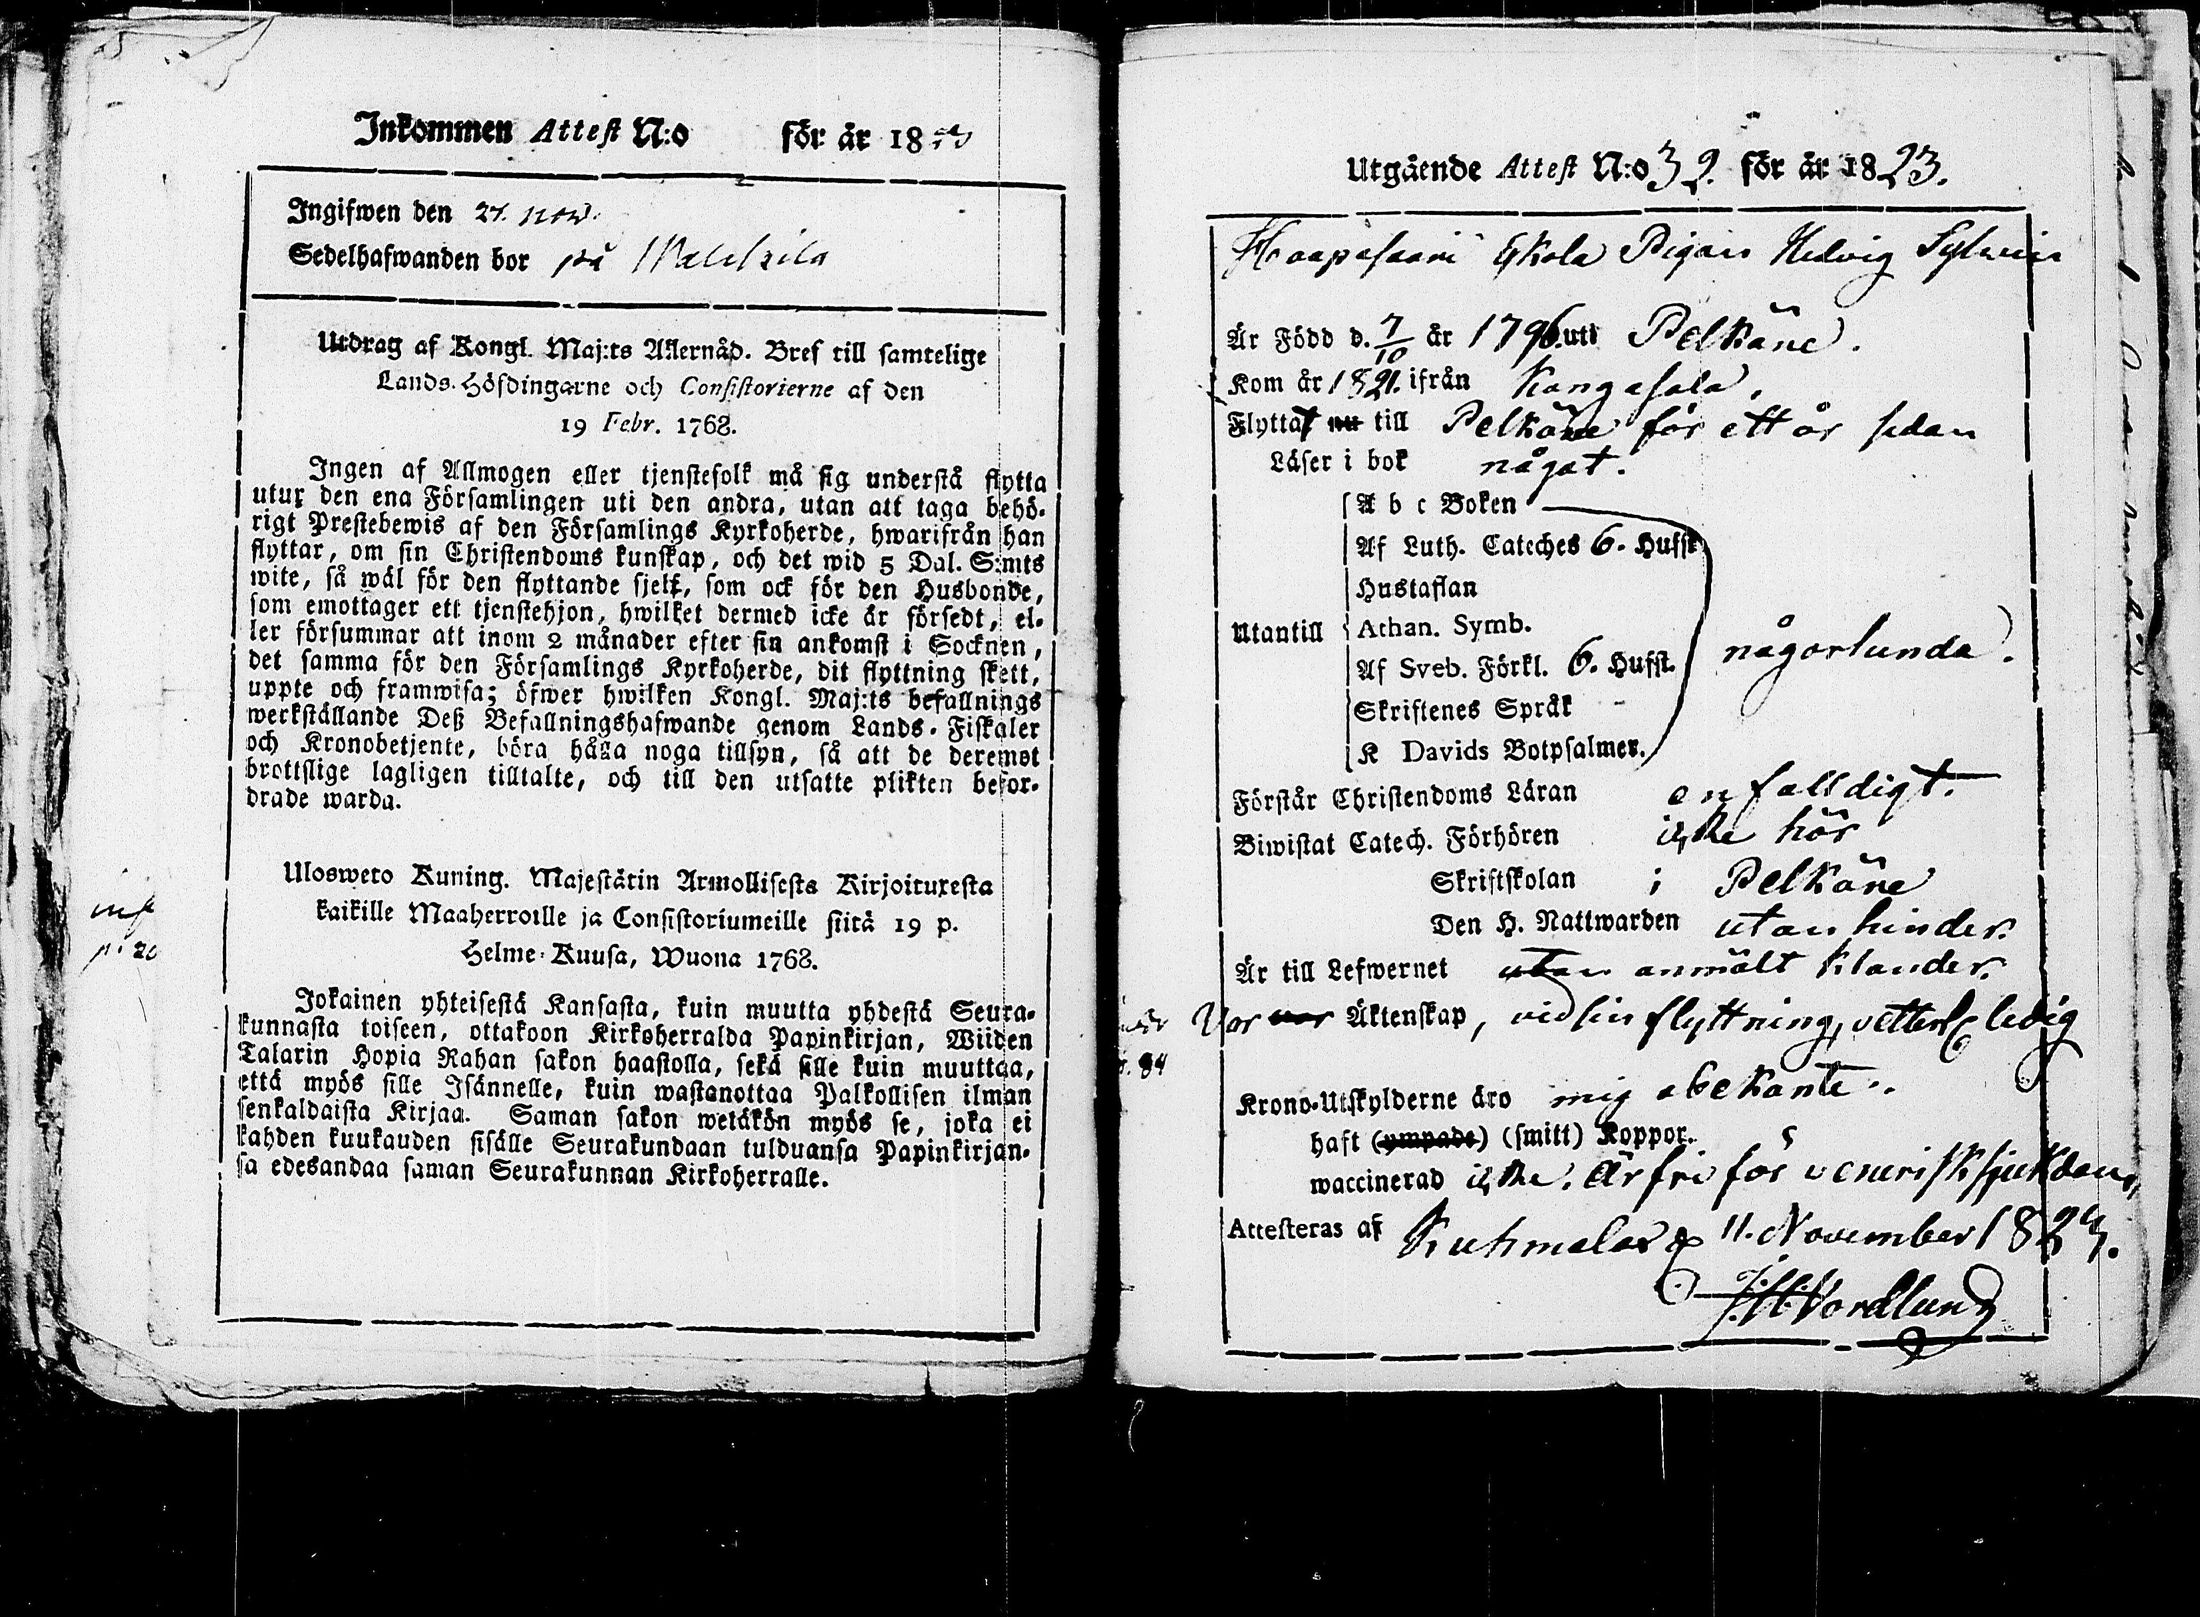 Inkommen Attest N:o för år 18
Ingifwen den 24. nov.
Sedelhafwanden bor på
Utdrag af Kongl. Maj:ts Allernåd. Bref till samtelige
Lands-Höfdingarne och Consistorierne af den
19 Febr. 1768.
Ingen af Allmogen eller tjenstefolk må sig understå flytta
utur den ena Församlingen uti den andra, utan att taga behö-
rigt Prestebewis af den Församlings Kyrkoherde, hwarifrån han
flyttar, om sin Christendoms kunskap, och det wid 5 Dal. S:mts
wite, så wäl för den flyttande sjelf, som ock för den Husbonde,
som emottager ett tjenstehjon, hwilket dermed icke är försedt, el-
ler försummar att inom 2 månader efter sin ankomst i Socknen,
det samma för den Församlings Kyrkoherde, dit flyttning skett,
uppte och framwisa; öfwer hwilken Kongl. Maj:ts befallnings
werkställande Deß Befallningshafwande genom Lands-Fiskaler
och Kronobetjente, böra hålla noga tillsyn, så att de deremot
brottslige lagligen tilltalte, och till den utsatte plikten befor-
drade warda.
Ulosweto Kuning. Majestätin Armollisesta Kirjoituxesta
kaikille Maaherroille ja Consistoriumeille siitä 19 p.
Helme-Kuusa, Wuona 1768.
Jokainen yhteisestä Kansasta, kuin muutta yhdestä Seura-
kunnasta toiseen, ottakoon Kirkoherralda Papinkirjan, Wiiden
Talarin Hopia Rahan sakon haastolla, sekä sille kuin muuttaa,
että myös sille Isännelle, kuin wastanottaa Palkollisen ilman
senkaldaista Kirjaa. Saman sakon wetäkön myös se, joka ei
kahden kuukauden sisälle Seurakundaan tulduansa Papinkirjan-
sa edesandaa saman Seurakunnan Kirkoherralle.
inf
p. 20
Utgående Attest N:o 32. för år 1823.
Haapasaari Eskola Pigan Hedvig
Är Född d. 7/10 år 1796. uti Pelkäne.
Kom år 1821. ifrån Kangasala.
Flyttat nu till Pelkäne för ett år sedan
Läser i bok något.
A b c Boken
Af Luth. Cateches 6. Hufst.
Hustaflan
Utantill Athan. Symb.
Af Sveb. Förkl. 6. Hufst. någorlunda.
Skriftenes Språk
K Davids Botpsalmer.
Förstår Christendoms Läran enfalldigt.
Biwistat Catech. Förhören icke här
Skriftskolan i Pelkäne
Den H. Nattwarden utan hinder.
Är till Lefwernet utan anmält klander.
Var Äktenskap, vid sin flyttning, ledig
p. 84
Krono-Utskylderne äro mig obekante.
haft (ympade) (smitt) Koppor.
waccinerad icke. Är fri för venerisk sjukdom,
Attesteras af Kuhmalax 11. November 1823.
Nordlund